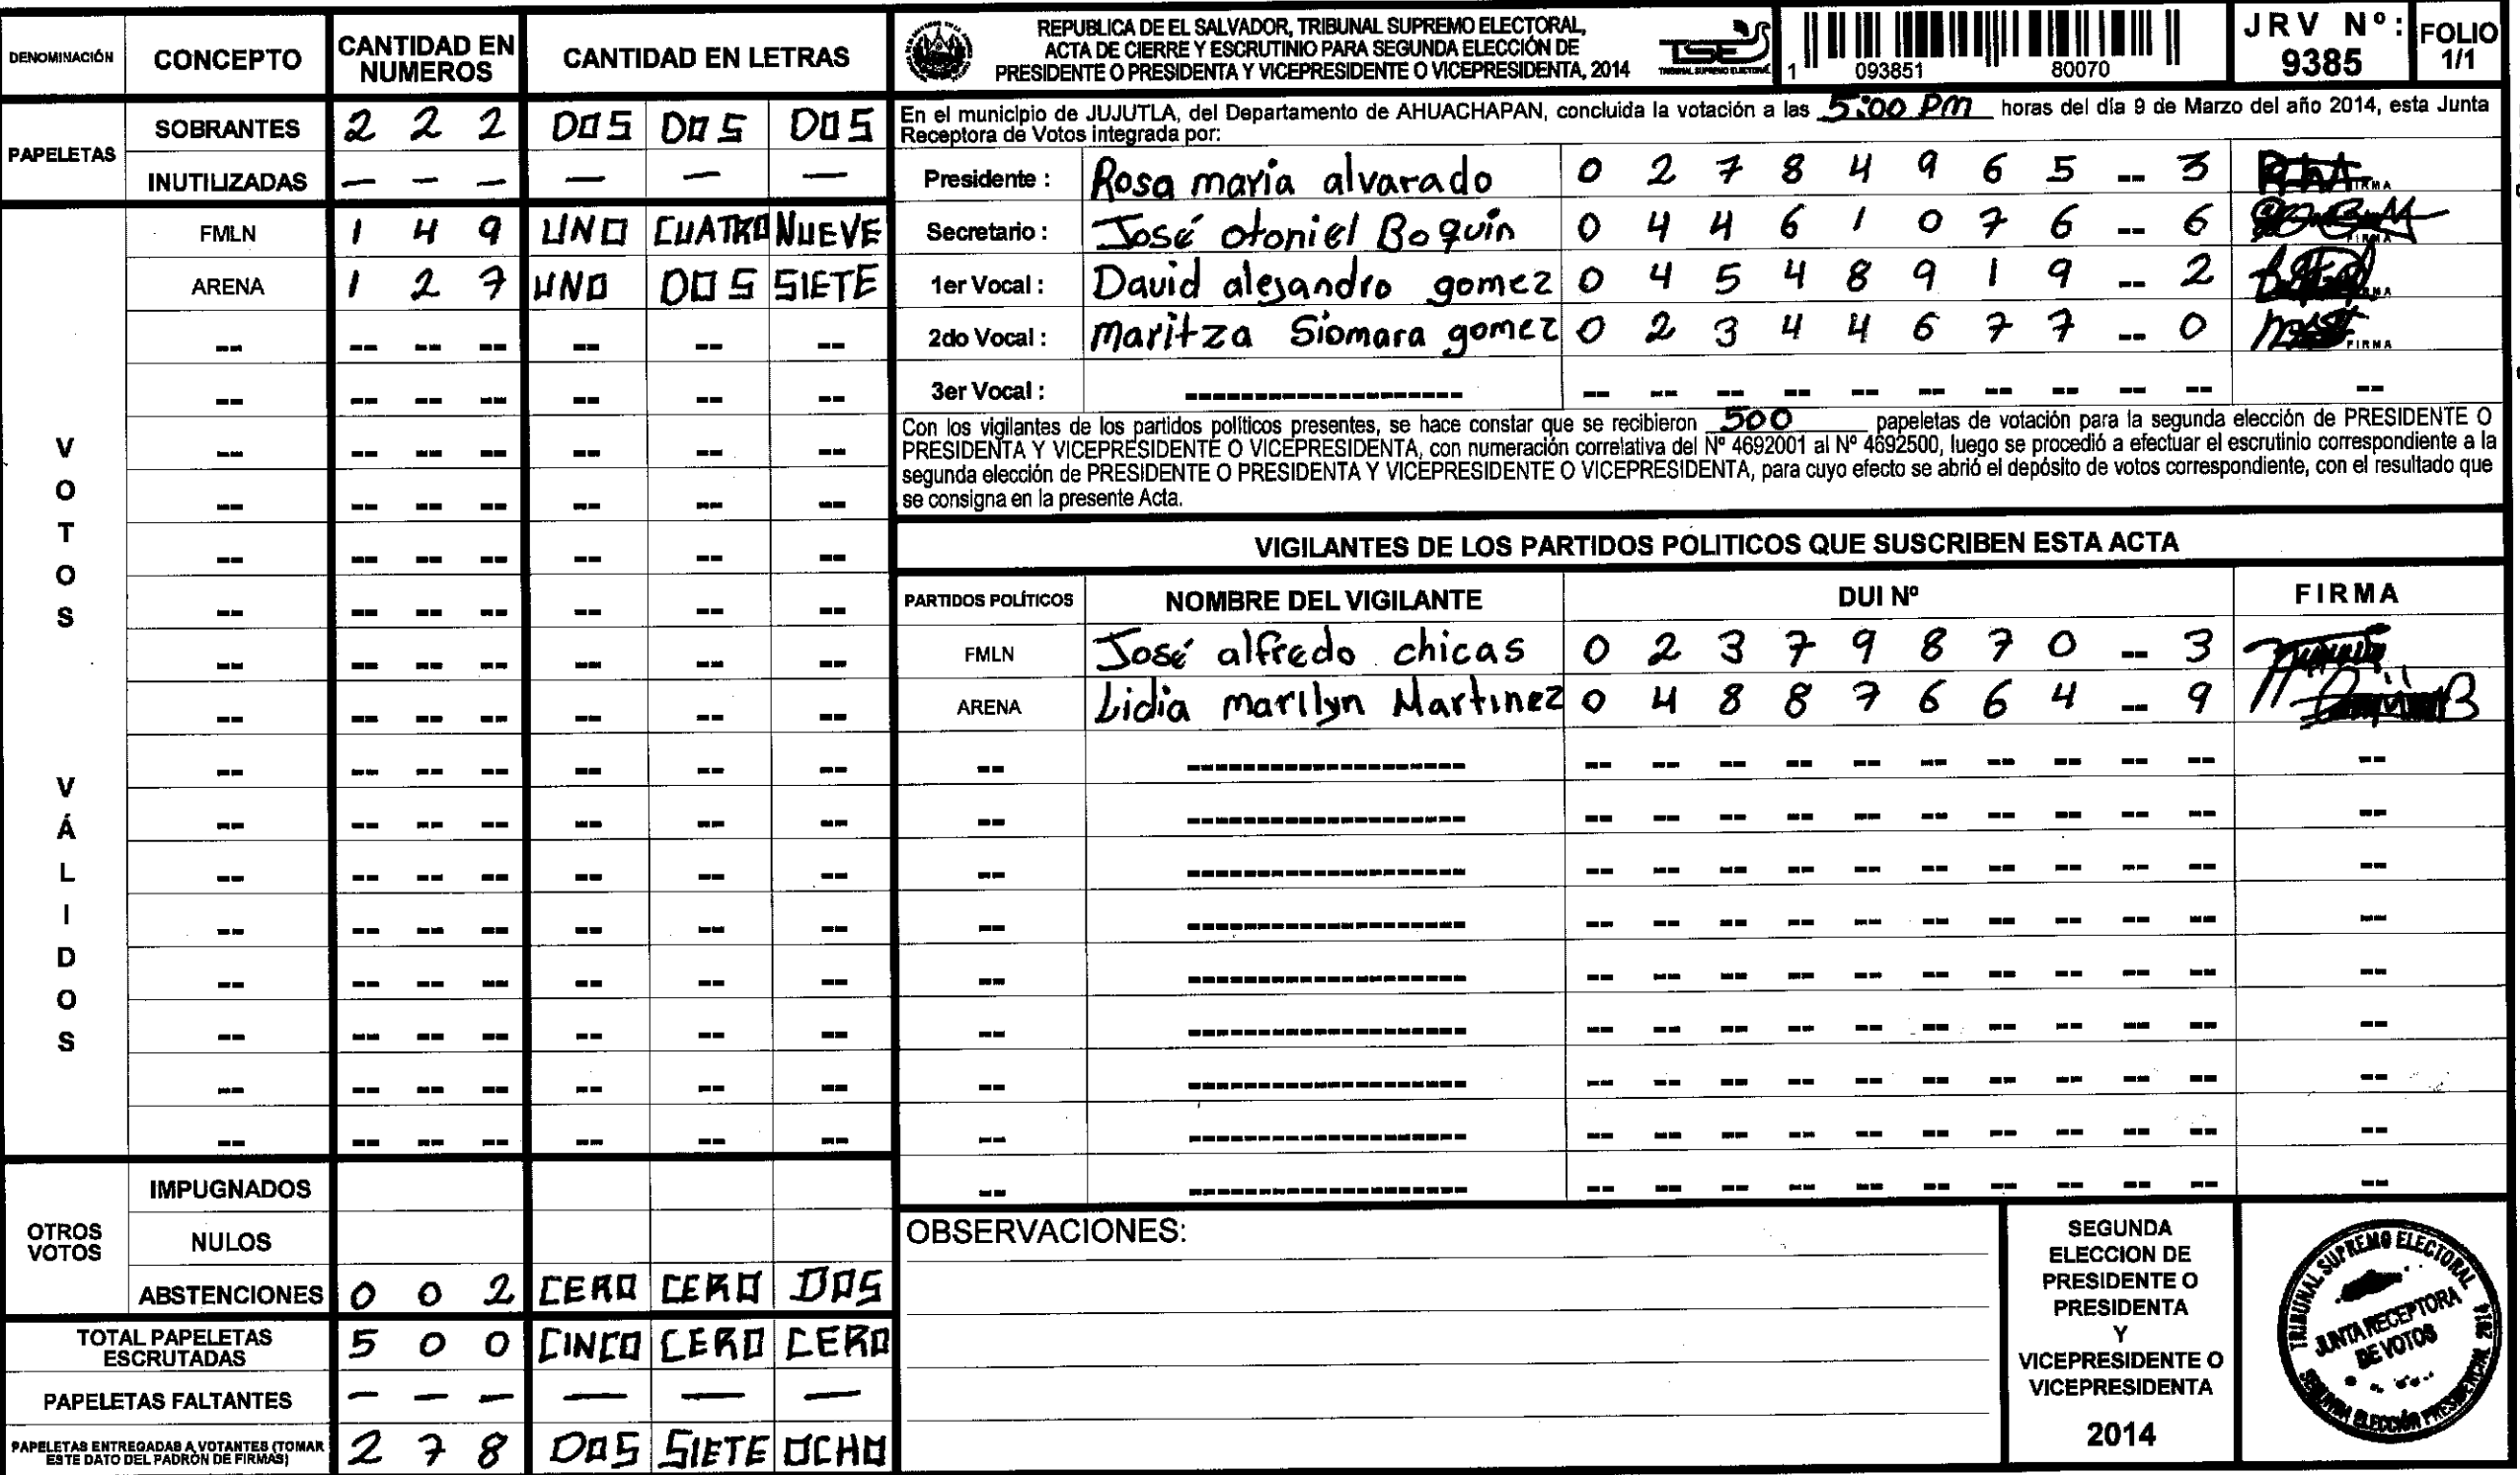 DENOMINACIÓN CONCEPTO CANTIDAD EN NUMEROS CANTIDAD EN LETRAS
PAPELETAS
SOBRANTES 2 2 2 DOS DOS DOS
INUTILIZADAS — — — — — —
VOTOS VÁLIDOS
FMLN 1 4 9 UNO CUATRO NUEVE
ARENA 1 2 7 UNO DOS SIETE
OTROS VOTOS
IMPUGNADOS
NULOS
ABSTENCIONES 0 0 2 CERO CERO DOS
TOTAL PAPELETAS ESCRUTADAS 5 0 0 CINCO CERO CERO
PAPELETAS FALTANTES — — — — — —
PAPELETAS ENTREGADAS A VOTANTES (TOMAR ESTE DATO DEL PADRON DE FIRMAS) 2 7 8 DOS SIETE OCHO
REPUBLICA DE EL SALVADOR, TRIBUNAL SUPREMO ELECTORAL,
ACTA DE CIERRE Y ESCRUTINIO PARA SEGUNDA ELECCIÓN DE
PRESIDENTE O PRESIDENTA Y VICEPRESIDENTE O VICEPRESIDENTA, 2014
TSE
TRIBUNAL SUPREMO ELECTORAL
1 093851 80070
JRV Nº: 9385
FOLIO 1/1
En el municipio de JUJUTLA, del Departamento de AHUACHAPAN, concluida la votación a las 5:00 PM horas del día 9 de Marzo del año 2014, esta Junta
Receptora de Votos integrada por:
Presidente : Rosa maria alvarado 0 2 7 8 4 9 6 5 -- 3 FIRMA
Secretario : José otoniel Boquin 0 4 4 6 1 0 7 6 -- 6 FIRMA
1er Vocal : David alejandro gomez 0 4 5 4 8 9 1 9 -- 2
2do Vocal : maritza Siomara gomez 0 2 3 4 4 6 7 7 -- 0 FIRMA
3er Vocal :
Con los vigilantes de los partidos políticos presentes, se hace constar que se recibieron 500 papeletas de votación para la segunda elección de PRESIDENTE O
PRESIDENTA Y VICEPRESIDENTE O VICEPRESIDENTA, con numeración correlativa del Nº 4692001 al Nº 4692500, luego se procedió a efectuar el escrutinio correspondiente a la
segunda elección de PRESIDENTE O PRESIDENTA Y VICEPRESIDENTE O VICEPRESIDENTA, para cuyo efecto se abrió el depósito de votos correspondiente, con el resultado que
se consigna en la presente Acta.
VIGILANTES DE LOS PARTIDOS POLITICOS QUE SUSCRIBEN ESTA ACTA
PARTIDOS POLÍTICOS NOMBRE DEL VIGILANTE DUI Nº FIRMA
FMLN José alfredo chicas 0 2 3 7 9 8 7 0 -- 3
ARENA Lidia marilyn Martinez 0 4 8 8 7 6 6 4 -- 9
OBSERVACIONES:
SEGUNDA
ELECCION DE
PRESIDENTE O
PRESIDENTA
Y
VICEPRESIDENTE O
VICEPRESIDENTA
2014
TRIBUNAL SUPREMO ELECTORAL 2014
JUNTA RECEPTORA
DE VOTOS
SEGUNDA ELECCIÓN PRESIDENCIAL